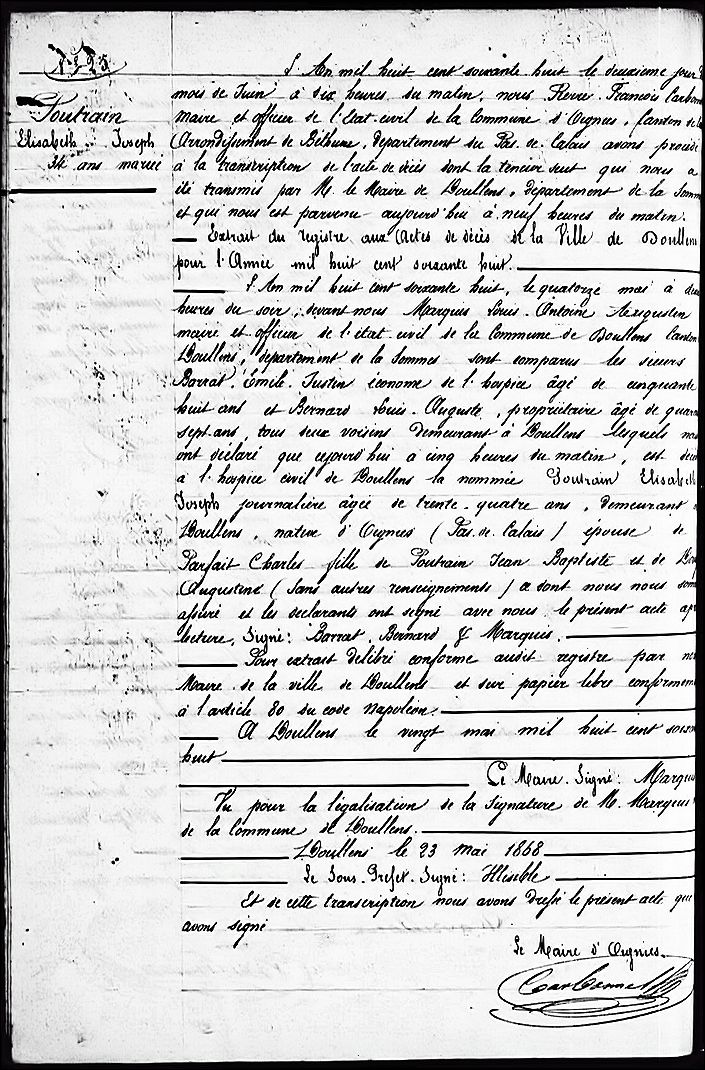 N° 25
Poutrain
Elisabeth Joseph
34 ans mariée
L'An mil huit cent soixante huit le deuxième jour d
mois de Juin à dix heures du matin, nous Pierre François Carbon
maire et officier de l'Etat civil de la commune d'Oignies, Canton de
Arrondissement de Béthune, département du Pas de Calais avons procédé
à la transcription de l'acte de décès dont la teneur suit qui nous a
été transmis par M. le Maire de Doullens, département de la Somm
et qui nous est parvenu aujourd'hui à neuf heures du matin.
Extrait du registre aux Actes de décès de la Ville de Doullens
pour l'Année mil huit cent soixante huit.
L'An mil huit cent soixante huit, le quatorze mai à deux
heures du soir, devant nous Marquis Louis Antoine Augustin
maire et officier de l'état civil de la Commune de Doullens Canton
Doullens, département de la Sommes sont comparus les sieurs
Barrat Émile Justin économe de l'hospice âgé de cinquante
huit ans et Bernard Louis Auguste, propriétaire âgé de quara
sept ans, tous deux voisins demeurant à Doullens lesquels nous
ont déclaré que cejourd'hui à cinq heures du matin, est déce
à l'hospice civil de Doullens la nommée Poutrain Elisabeth
Joseph journalière âgée de trente quatre ans, demeurant
Doullens, native d'Oignies (Pas de Calais) épouse de
Parfait Charles fille de Poutrain Jean Baptiste et de
Augustine (Sans autres renseignements) a dont nous nous som
assuré et les déclarants ont signé avec nous le présent acte apr
lecture, Signé: Barrat, Bernard & Marquis.
Pour extrait délibré conforme audit registre par no
Maire de la ville de Doullens et sur papier libre conformem
à l'article 80 du code Napoléon.
A Doullens le vingt mai mil huit cent soixan
huit
Le Maire Signé: Marquis
Vu pour la légalisation de la Signature de M. Marquis
de la Commune de Doullens.
Doullens le 23 Mai 1868
Le Sous-Préfet Signé: Illisible
Et de cette transcription nous avons dressé le présent acte que
avons signé
Le Maire d'Oignies.
Carbonnel